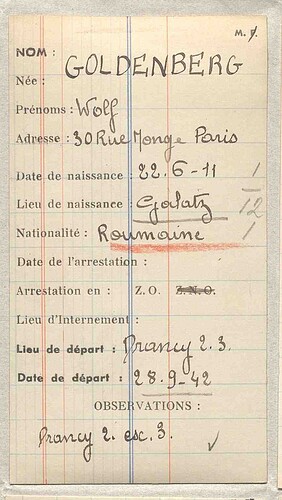 M. 1.
NOM : GOLDENBERG
Née :
Prénoms : Wolf
Adresse : 30 Rue Monge Paris
Date de naissance : 22.6-11 1
Lieu de naissance : Galatz 12
Nationalité : Roumaine 1
Date de l'arrestation :
Arrestation en : Z.O. Z.N.O.
Lieu d'Internement :
Lieu de départ : Drancy 2.3.
Date de départ : 28.9-42
OBSERVATIONS :
Drancy 2. esc. 3.